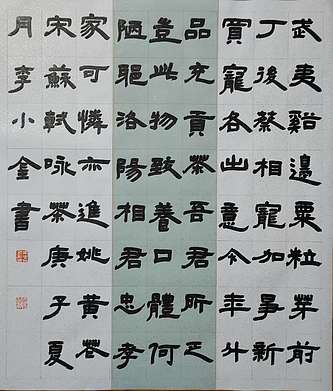 武夷谿邊粟粒芽前
丁後蔡相寵加爭新
買寵各出意今年斗
品充貢茶吾君所乏
豈此物致養口體何
陋耶洛陽相君忠孝
家可憐亦進姚黃花
宋蘇軾詠茶庚子夏
月李小金書